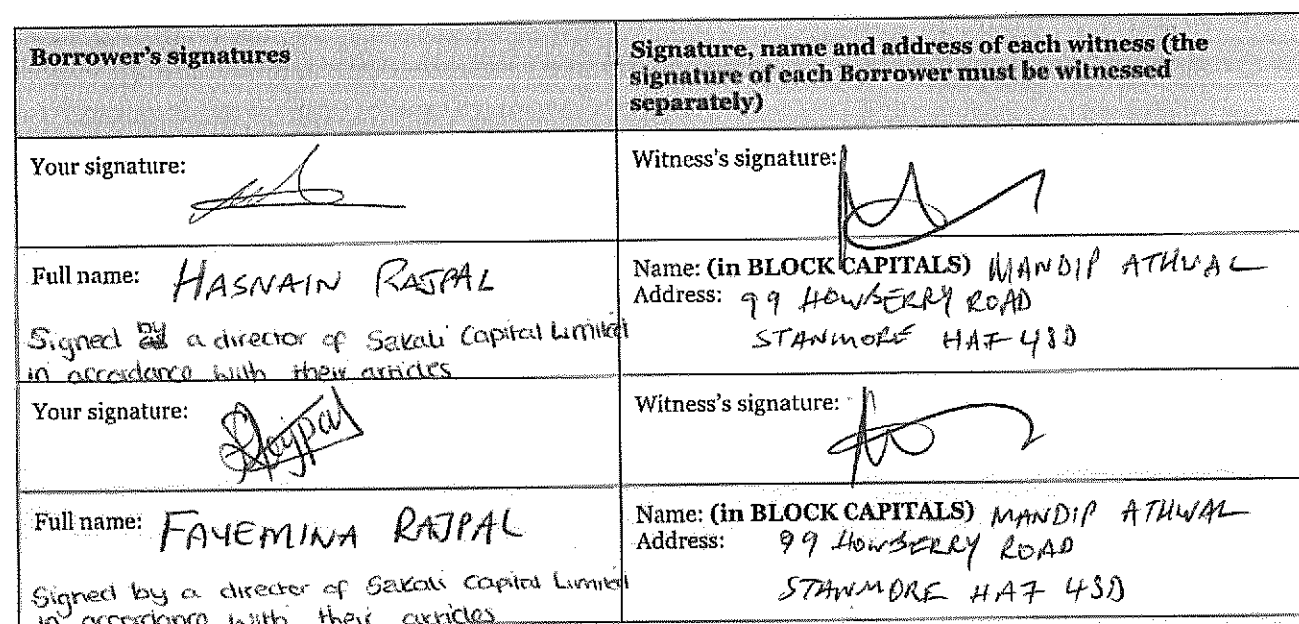 Borrower's signatures
Signature, name and address of each witness (the
signature of each Borrower must be witnessed
separately)
Your signature:
Witness's signature:
Full name: HASNAIN RAJPAL
Signed by a director of Sakali Capital Limited
in accordance with their articles
Name: (in BLOCK CAPITALS) MANDIP ATHWAL
Address: 99 HOWBERRY ROAD
STANMORE HA7 4SD
Your signature: Rajpal
Witness's signature:
Full name: FAYEMINA RAJPAL
Signed by a director of Sakali Capital Limited
in accordance with their articles
Name: (in BLOCK CAPITALS) MANDIP ATHWAL
Address: 99 HOWBERRY ROAD
STANMORE HA7 4SD